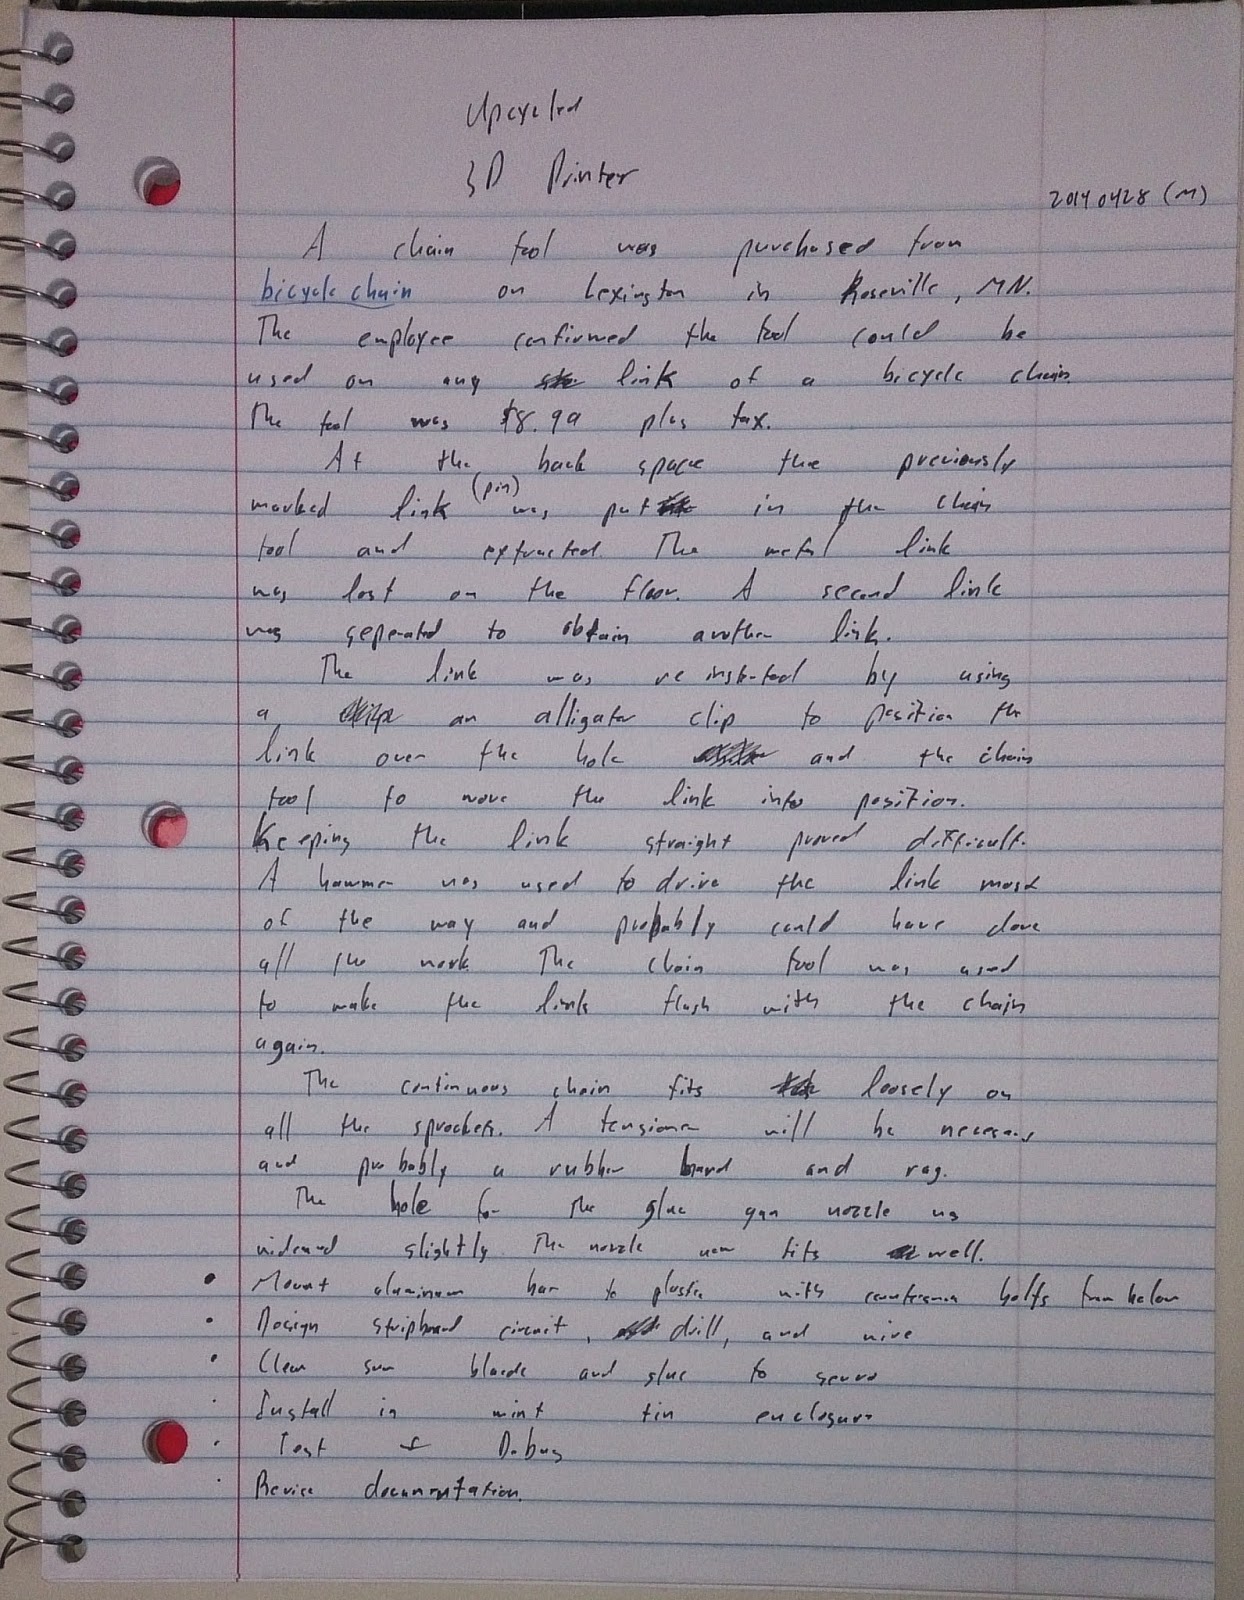 Upcycled
3D Printer
20140428 (M)
A chain tool was purchased from
bicycle chain on Lexington in Roseville, MN.
The employee confirmed the tool could be
used on any link of a bicycle chain.
The tool was $8.99 plus tax.
At the back space the previously
marked link (pin) was put in the chain
tool and extracted. The metal link
was lost on the floor. A second link
was seperated to obtain another link.
The link was reinstalled by using
a an alligator clip to position the
link over the hole and the chain
tool to move the link into position.
Keeping the link straight proved difficult.
A hammer was used to drive the link most
of the way and probably could have done
all the work. The chain tool was used
to make the link flush with the chain
again.
The continuous chain fits loosely on
all the sprockets. A tensioner will be necessary
and probably a rubber band and rag.
The hole for the glue gun nozzle was
widened slightly. The nozzle now fits well.
• Mount aluminum bar to plastic with countersunk bolts from below
• Design stripboard circuit, drill, and wire
• Clean saw blade and glue to
• Install in mint tin enclosure
• Test & Debug
• Revise documentation.